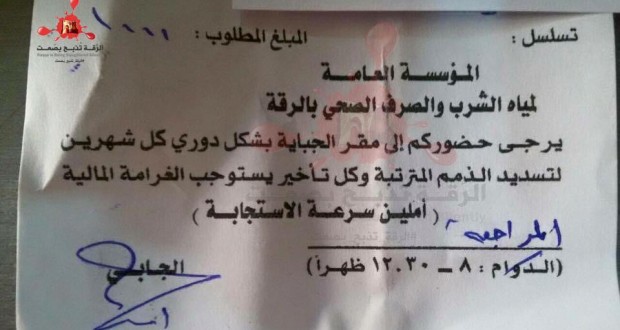 تسلسل : المبلغ المطلوب :
المؤسسة العامة
لمياه الشرب والصرف الصحي بالرقة
يرجى حضوركم إلى مقر الجباية بشكل دوري كل شهرين
لتسديد الذمم المترتبة وكل تأخير يستوجب الغرامة المالية
( أملين سرعة الاستجابة )
المراجعة
(الدوام : ٨ - ١٢.٣٠ ظهراً)
الجابي
الرقة تذبح بصمت